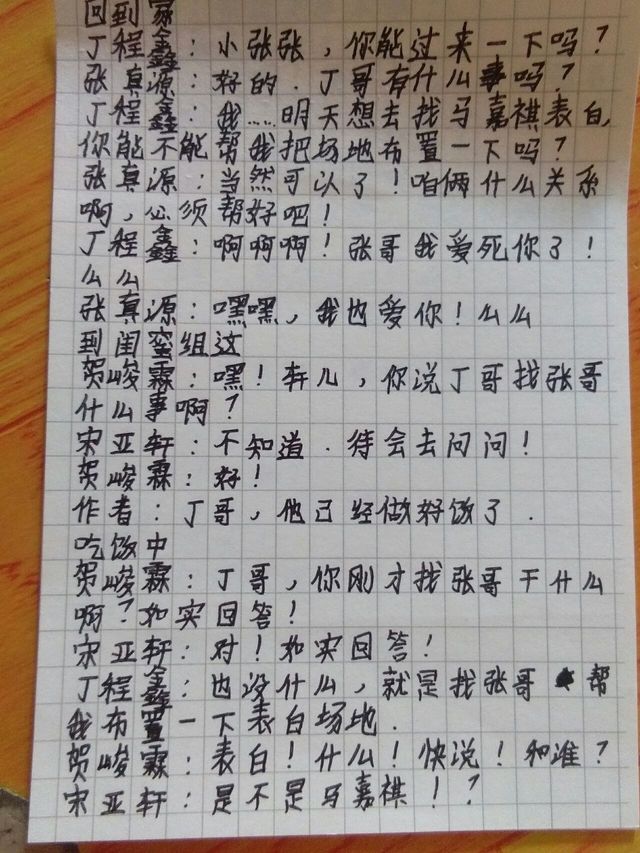 回到家
丁程鑫：小张张，你能过来一下吗？
张真源：好的．丁哥有什么事吗？
丁程鑫：我……明天想去找马嘉祺表白，
你能不能帮我把场地布置一下吗？
张真源：当然可以了！咱俩什么关系
啊，必须帮好吧！
丁程鑫：啊啊啊！张哥我爱死你了！
么么
张真源：嘿嘿，我也爱你！么么
到闺蜜组这
贺峻霖：嘿！轩儿，你说丁哥找张哥
什么事啊？
宋亚轩：不知道．待会去问问！
贺峻霖：好！
作者：丁哥，他已经做好饭了．
吃饭中
贺峻霖：丁哥，你刚才找张哥干什么
啊？如实回答！
宋亚轩：对！如实回答！
丁程鑫：也没什么，就是找张哥帮
我布置一下表白场地．
贺峻霖：表白！什么！快说！和谁？
宋亚轩：是不是马嘉祺！？